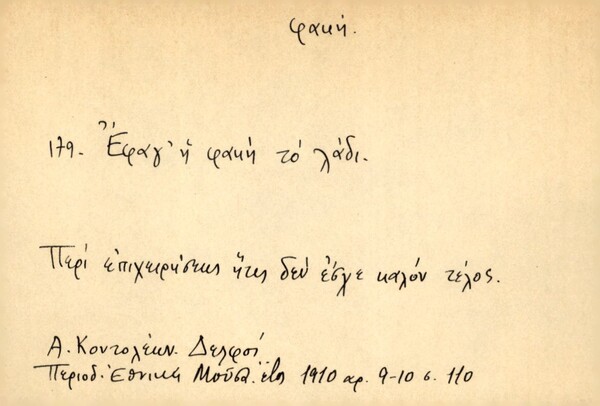 φακή.
179. Ἔφαγ' ἡ φακή τό λάδι.
Περί ἐπιχειρήσεως ἥτις δέν ἔσχε καλόν τέλος.
Α. Κοντολέων. Δελφοί
Περιοδ. Ἐθνική Μοῦσα. ἔτος 1910 αρ. 9-10 σ. 110